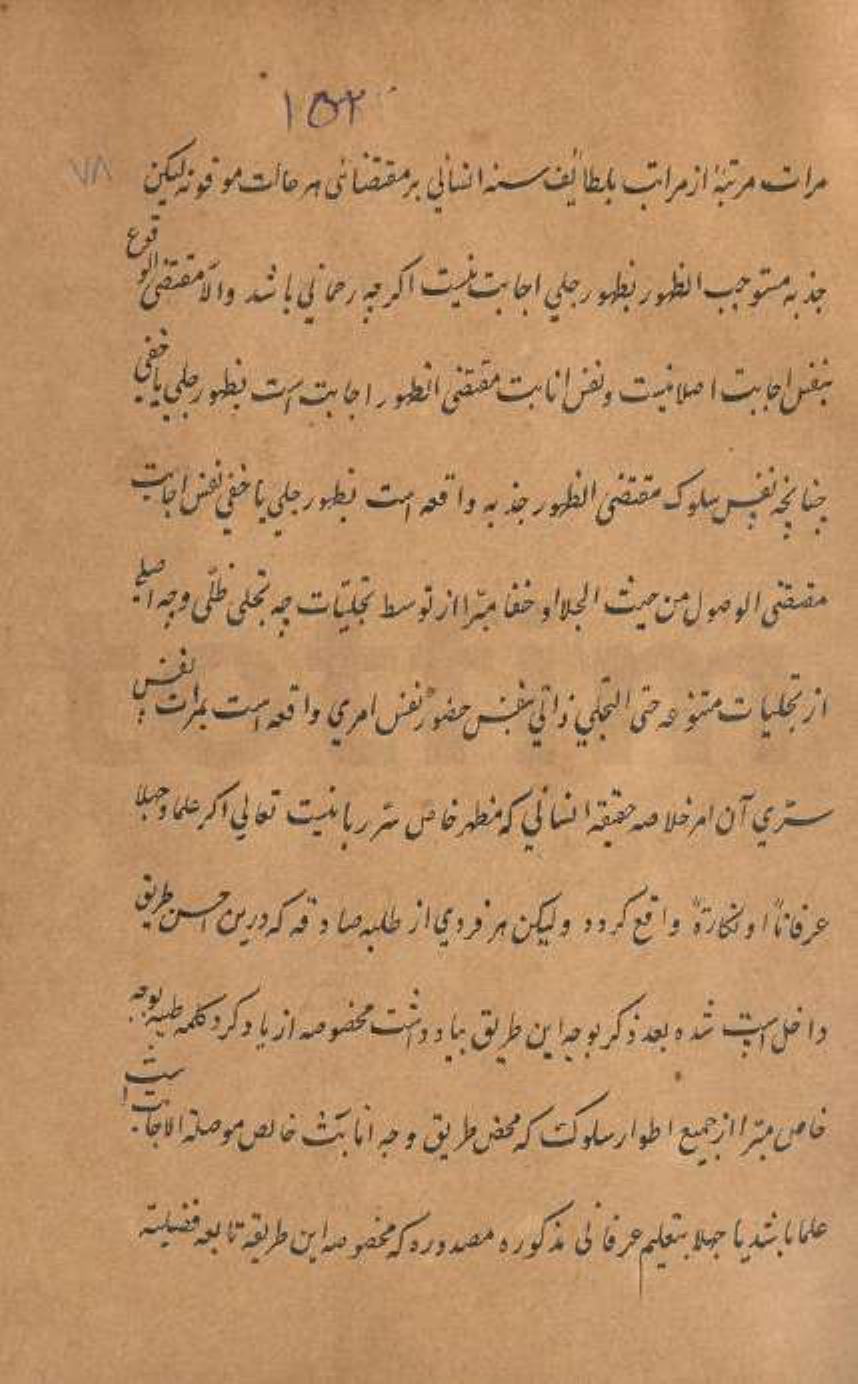 ۱۵۲
۷۸
مرات مرتبهٔ از مراتب بلطایف سته انسانی بر مقتضائی هر حالت موقوفه لیکن
جذبه مستوجب الظهور بظهور جلی اجابت نیست اکرچه رحمانی باشد والّا مقتضی الوقوع
بنفس اجابت اصلا نیست و نفس انابت مقتضی الظهور اجابت است بظهور جلی یا خفی
چنانچه نفس سلوک مقتضی الظهور جذبه واقعه است بظهور جلی یا خفی نفس اجابت
مقتضی الوصول من حیث الجلا او خفا مبّرا از توسط تجلیّات چه تجلی ظلّی و چه اصلی
از تجلیات متنوعه حتی التجلّی ذاتی بنفس حضور نفس امری واقعه است بمرات نفس
سرّی آن امر خلاصه حقیقه انسانی که مظهر خاص سّر ربانیت تعالی اکر علما و جهلا
عرفاناً او نکارةً واقع کردد ولیکن هر فردی از طلبه صادقه که درین احسن طریق
داخل است شده بعد ذکر بوجه این طریق بیاد داشت مخصوصه از یاد کرد کلمه طیبه بوجه
خاص مبّرا از جمیع اطوار سلوک که محض طریق وجه انابت خالص موصلة الاجابت است
علما باشد یا جهلا بتعلیم عرفانی مذکوره مصدوره که مخصوصه این طریقه تابعه فضیلیته